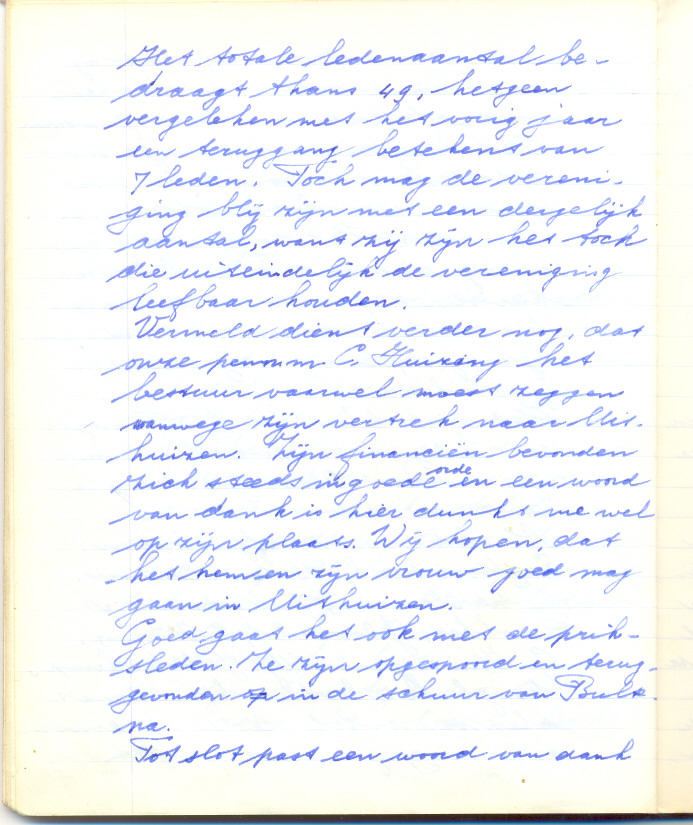 Het totale ledenaantal be-
draagt thans 49, hetgeen
vergeleken met het vorig jaar
een teruggang betekent van
7 leden. Toch mag de vereni-
ging blij zijn met een dergelijk
aantal, want zij zijn het toch
die uiteindelijk de vereniging
leefbaar houden.
Vermeld dient verder nog, dat
onze pennm C. Huizing het
bestuur vaarwel moest zeggen
vanwege zijn vertrek naar Uit-
huizen. Zijn financiën bevonden
zich steeds in goede orde en een woord
van dank is hier dunkt me wel
op zijn plaats. Wij hopen, dat
het hem en zijn vrouw goed mag
gaan in Uithuizen.
Goed gaat het ook met de prik-
sleden. Ze zijn opgespoord en terug-
gevonden in de schuur van Bult-
na.
Tot slot past een woord van dank